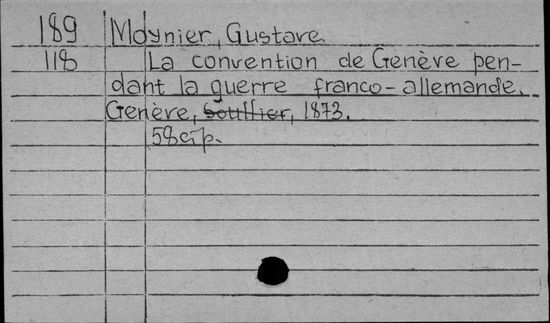 189 Moynier, Gustave
118 La convention de Genève pen-
dant la guerre franco-allemande.
Genève, Soullier, 1873.
58 p.